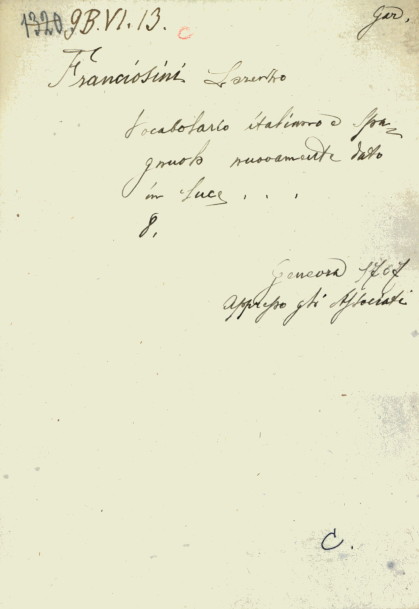 1320 9B.VI.13. C Gar.
Franciosini Lorenzo
Vocabolario italiano e Spa=
gnuolo nuovamente dato
in Luce . . .
8.
Genevra 1707
appresso gli Associati
C.